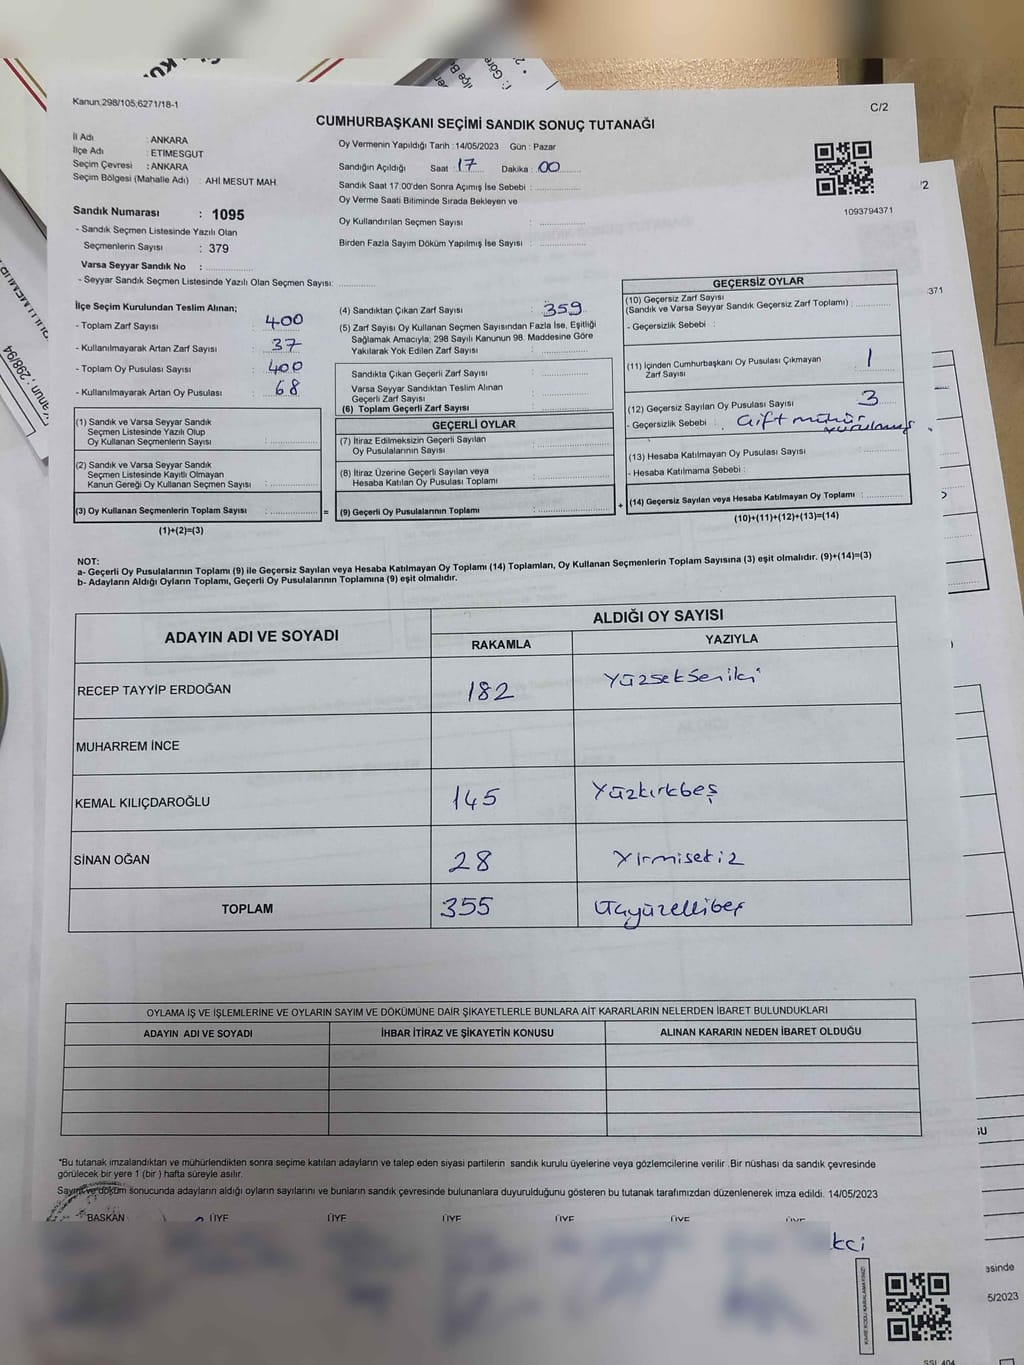 Kanun;298/105;6271/18-1
C/2
CUMHURBAŞKANI SEÇİMİ SANDIK SONUÇ TUTANAĞI
İl Adı : ANKARA
İlçe Adı : ETİMESGUT
Seçim Çevresi : ANKARA
Seçim Bölgesi (Mahalle Adı) : AHİ MESUT MAH.
Oy Vermenin Yapıldığı Tarih :14/05/2023 Gün : Pazar
Sandığın Açıldığı Saat :17 Dakika :00
Sandık Saat 17.00'den Sonra Açımış İse Sebebi :
Oy Verme Saati Bitiminde Sırada Bekleyen ve
Oy Kullandırılan Seçmen Sayısı :
Birden Fazla Sayım Döküm Yapılmış İse Sayısı :
1093794371
Sandık Numarası : 1095
- Sandık Seçmen Listesinde Yazılı Olan
Seçmenlerin Sayısı : 379
Varsa Seyyar Sandık No :
- Seyyar Sandık Seçmen Listesinde Yazılı Olan Seçmen Sayısı:
İlçe Seçim Kurulundan Teslim Alınan;
- Toplam Zarf Sayısı : 400
- Kullanılmayarak Artan Zarf Sayısı : 37
- Toplam Oy Pusulası Sayısı : 400
- Kullanılmayarak Artan Oy Pusulası : 68
(1) Sandık ve Varsa Seyyar Sandık
Seçmen Listesinde Yazılı Olup
Oy Kullanan Seçmenlerin Sayısı :
(2) Sandık ve Varsa Seyyar Sandık
Seçmen Listesinde Kayıtlı Olmayan
Kanun Gereği Oy Kullanan Seçmen Sayısı :
(3) Oy Kullanan Seçmenlerin Toplam Sayısı : =
(1)+(2)=(3)
(4) Sandıktan Çıkan Zarf Sayısı : 359
(5) Zarf Sayısı Oy Kullanan Seçmen Sayısından Fazla İse, Eşitliği
Sağlamak Amacıyla; 298 Sayılı Kanunun 98. Maddesine Göre
Yakılarak Yok Edilen Zarf Sayısı :
Sandıkta Çıkan Geçerli Zarf Sayısı :
Varsa Seyyar Sandıktan Teslim Alınan
Geçerli Zarf Sayısı :
(6) Toplam Geçerli Zarf Sayısı :
GEÇERLİ OYLAR
(7) İtiraz Edilmeksizin Geçerli Sayılan
Oy Pusulalarının Sayısı :
(8) İtiraz Üzerine Geçerli Sayılan veya
Hesaba Katılan Oy Pusulası Toplamı :
(9) Geçerli Oy Pusulalarının Toplamı : +
GEÇERSİZ OYLAR
(10) Geçersiz Zarf Sayısı
(Sandık ve Varsa Seyyar Sandık Geçersiz Zarf Toplamı) :
- Geçersizlik Sebebi :
(11) İçinden Cumhurbaşkanı Oy Pusulası Çıkmayan
Zarf Sayısı : 1
(12) Geçersiz Sayılan Oy Pusulası Sayısı : 3
- Geçersizlik Sebebi : Çift mühür
vurulmuş
(13) Hesaba Katılmayan Oy Pusulası Sayısı :
- Hesaba Katılmama Sebebi :
(14) Geçersiz Sayılan veya Hesaba Katılmayan Oy Toplamı :
(10)+(11)+(12)+(13)=(14)
NOT:
a- Geçerli Oy Pusulalarının Toplamı (9) ile Geçersiz Sayılan veya Hesaba Katılmayan Oy Toplamı (14) Toplamları, Oy Kullanan Seçmenlerin Toplam Sayısına (3) eşit olmalıdır. (9)+(14)=(3)
b- Adayların Aldığı Oyların Toplamı, Geçerli Oy Pusulalarının Toplamına (9) eşit olmalıdır.
ADAYIN ADI VE SOYADI
ALDIĞI OY SAYISI
RAKAMLA YAZIYLA
RECEP TAYYİP ERDOĞAN 182 Yüzsekseniki
MUHARREM İNCE
KEMAL KILIÇDAROĞLU 145 Yüzkırkbeş
SİNAN OĞAN 28 Yirmisekiz
TOPLAM 355 Üçyüzellibeş
OYLAMA İŞ VE İŞLEMLERİNE VE OYLARIN SAYIM VE DÖKÜMÜNE DAİR ŞİKAYETLERLE BUNLARA AİT KARARLARIN NELERDEN İBARET BULUNDUKLARI
ADAYIN ADI VE SOYADI İHBAR İTİRAZ VE ŞİKAYETİN KONUSU ALINAN KARARIN NEDEN İBARET OLDUĞU
*Bu tutanak imzalandıktan ve mühürlendikten sonra seçime katılan adayların ve talep eden siyasi partilerin sandık kurulu üyelerine veya gözlemcilerine verilir .Bir nüshası da sandık çevresinde
görülecek bir yere 1 (bir ) hafta süreyle asılır.
Sayım ve döküm sonucunda adayların aldığı oyların sayılarını ve bunların sandık çevresinde bulunanlara duyurulduğunu gösteren bu tutanak tarafımızdan düzenlenerek imza edildi. 14/05/2023
BAŞKAN ÜYE ÜYE ÜYE ÜYE ÜYE ÜYE
kci
KAREKODU KARALAMAYINIZ!
371
asinde
5/2023